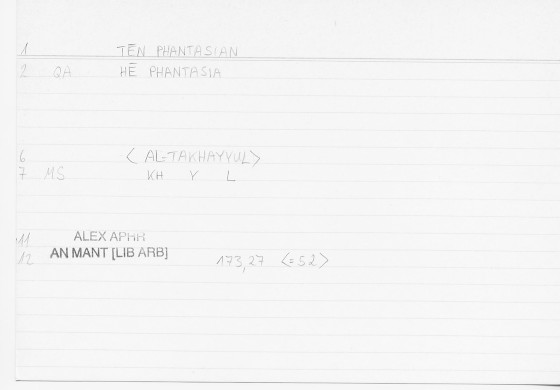 1 TĒN PHANTASIAN
2 QA HĒ PHANTASIA
6 〈AL-TAKHAYYUL〉
7 MS KH Y L
11 ALEX APHR
12 AN MANT [LIB ARB] 173,27 〈=52〉